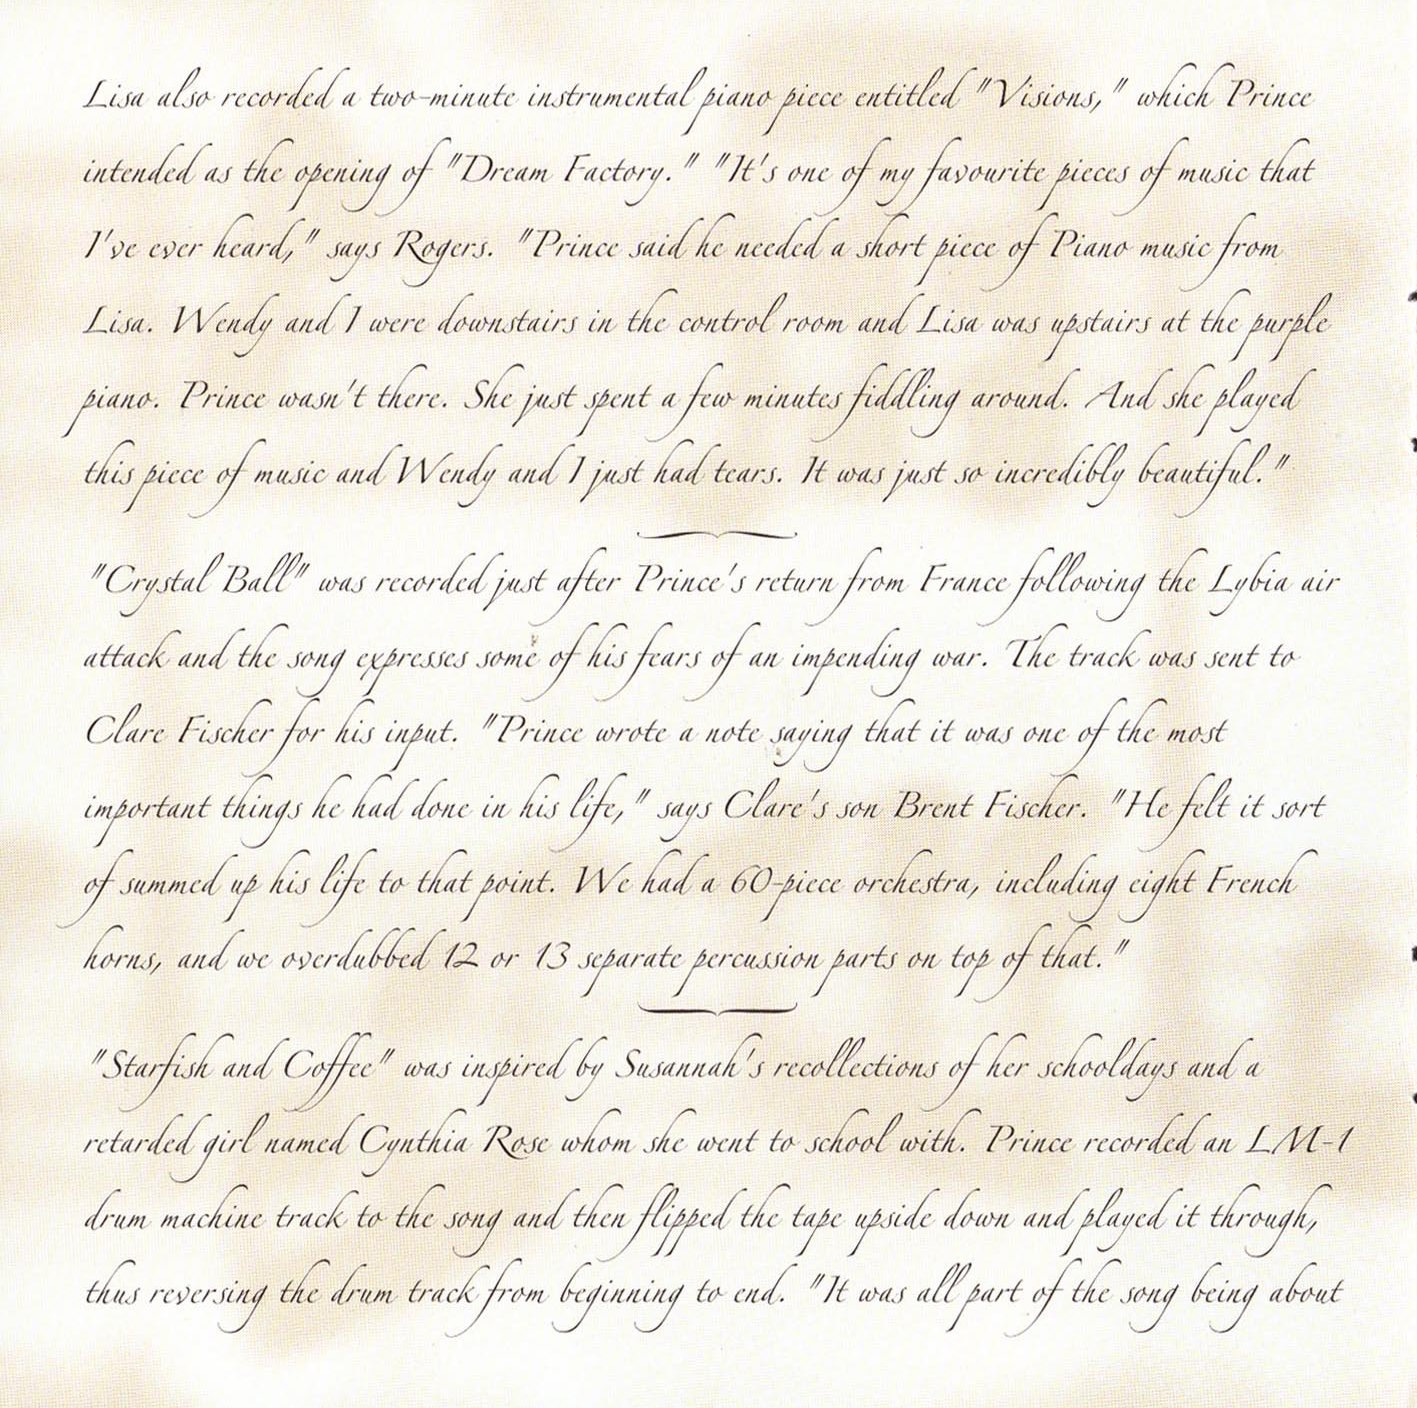 Lisa also recorded a two-minute instrumental piano piece entitled "Visions," which Prince
intended as the opening of "Dream Factory." "It's one of my favourite pieces of music that
I've ever heard," says Rogers. "Prince said he needed a short piece of Piano music from
Lisa. Wendy and I were downstairs in the control room and Lisa was upstairs at the purple
piano. Prince wasn't there. She just spent a few minutes fiddling around. And she played
this piece of music and Wendy and I just had tears. It was just so incredibly beautiful."
"Crystal Ball" was recorded just after Prince's return from France following the Lybia air
attack and the song expresses some of his fears of an impending war. The track was sent to
Clare Fischer for his input. "Prince wrote a note saying that it was one of the most
important things he had done in his life," says Clare's son Brent Fischer. "He felt it sort
of summed up his life to that point. We had a 60-piece orchestra, including eight French
horns, and we overdubbed 12 or 13 separate percussion parts on top of that."
"Starfish and Coffee" was inspired by Susannah's recollections of her schooldays and a
retarded girl named Cynthia Rose whom she went to school with. Prince recorded an LM-1
drum machine track to the song and then flipped the tape upside down and played it through,
thus reversing the drum track from beginning to end. "It was all part of the song being about